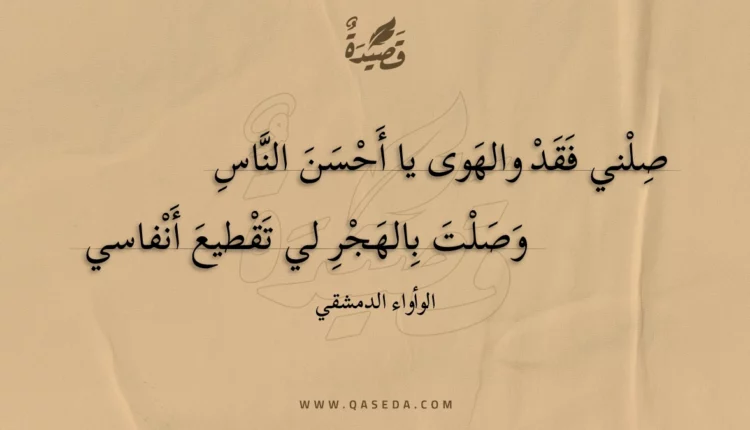 قَصِيدَةٌ
صِلْني فَقَدْ والهَوى يا أَحْسَنَ النَّاسِ
وَصَلْتَ بِالهَجْرِ لي تَقْطيعَ أَنْفاسي
الوأواء الدمشقي
WWW.QASEDA.COM